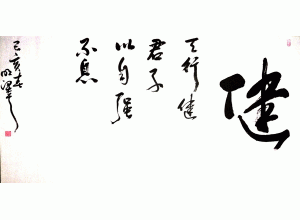 健
天行健
君子
以自强
不息
己亥春